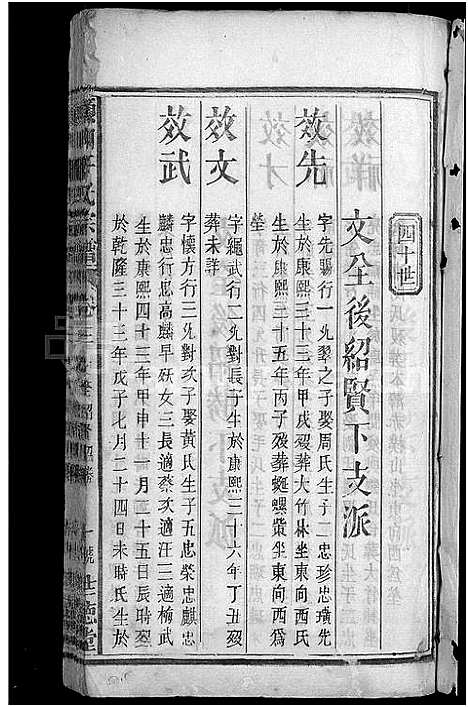 四十世
文全後紹賢下支派
效先
字先賜行一允翠之子娶周氏生子二忠珍忠璜先
生於康熙三十三年甲戌歿葬大竹林坐東向西氏
生於康熙三十五年丙子歿葬蜒螺第坐東向西為
塋
效文
字繩武行二允對長子生於康熙三十六年丁丑歿
葬未詳
效武
字懷方行六允對次子娶黃氏生子五忠榮忠麒忠
麟忠行忠高麟早殀女三長適蔡次適汪三適楡武
生於康熙四十三年甲申十一月二十五日辰時歿
於乾隆三十三年戊子七月二十四日未時氏生於
氏宗譜 卷三
世德堂